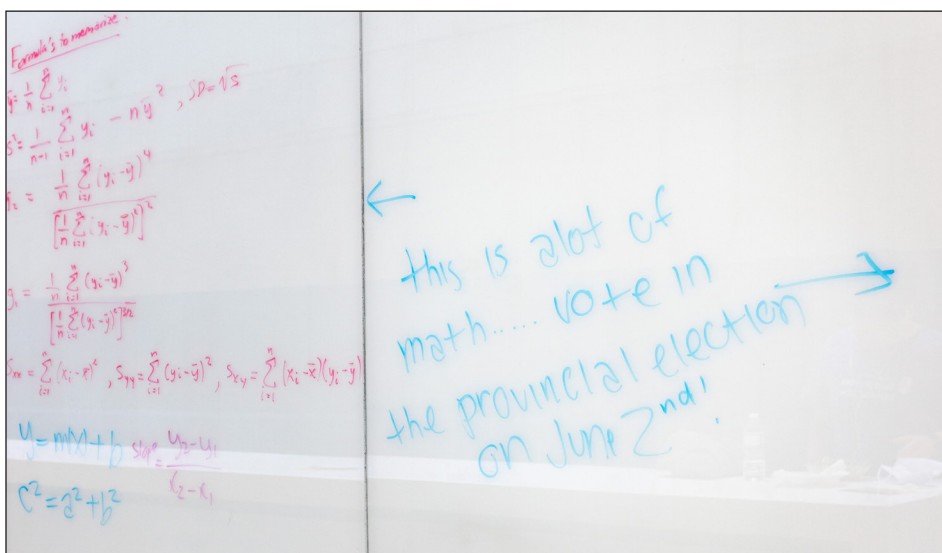 Formula's to memorize:
ȳ = 1/n ∑ᵢ₌₁ⁿ yᵢ
s² = 1/n-1 ∑ᵢ₌₁ⁿ yᵢ - nȳ², SD = √s
= 1/n ∑ᵢ₌₁ⁿ (yᵢ-ȳ)⁴ / [1/n ∑ᵢ₌₁ⁿ (yᵢ-ȳ)²]²
g₁ = 1/n ∑ᵢ₌₁ⁿ (yᵢ-ȳ)³ / [1/n ∑ᵢ₌₁ⁿ (yᵢ-ȳ)²]^3/2
Sxx = ∑ᵢ₌₁ⁿ (xᵢ-x̄)², Syy = ∑ᵢ₌₁ⁿ (yᵢ-ȳ)², Sxy = ∑ᵢ₌₁ⁿ (xᵢ-x̄)(yᵢ-ȳ)
y = mx + b slope = y₂-y₁ / x₂-x₁
c² = a² + b²
←
this is alot of
math..... vote in →
the provincial election
on June 2nd!